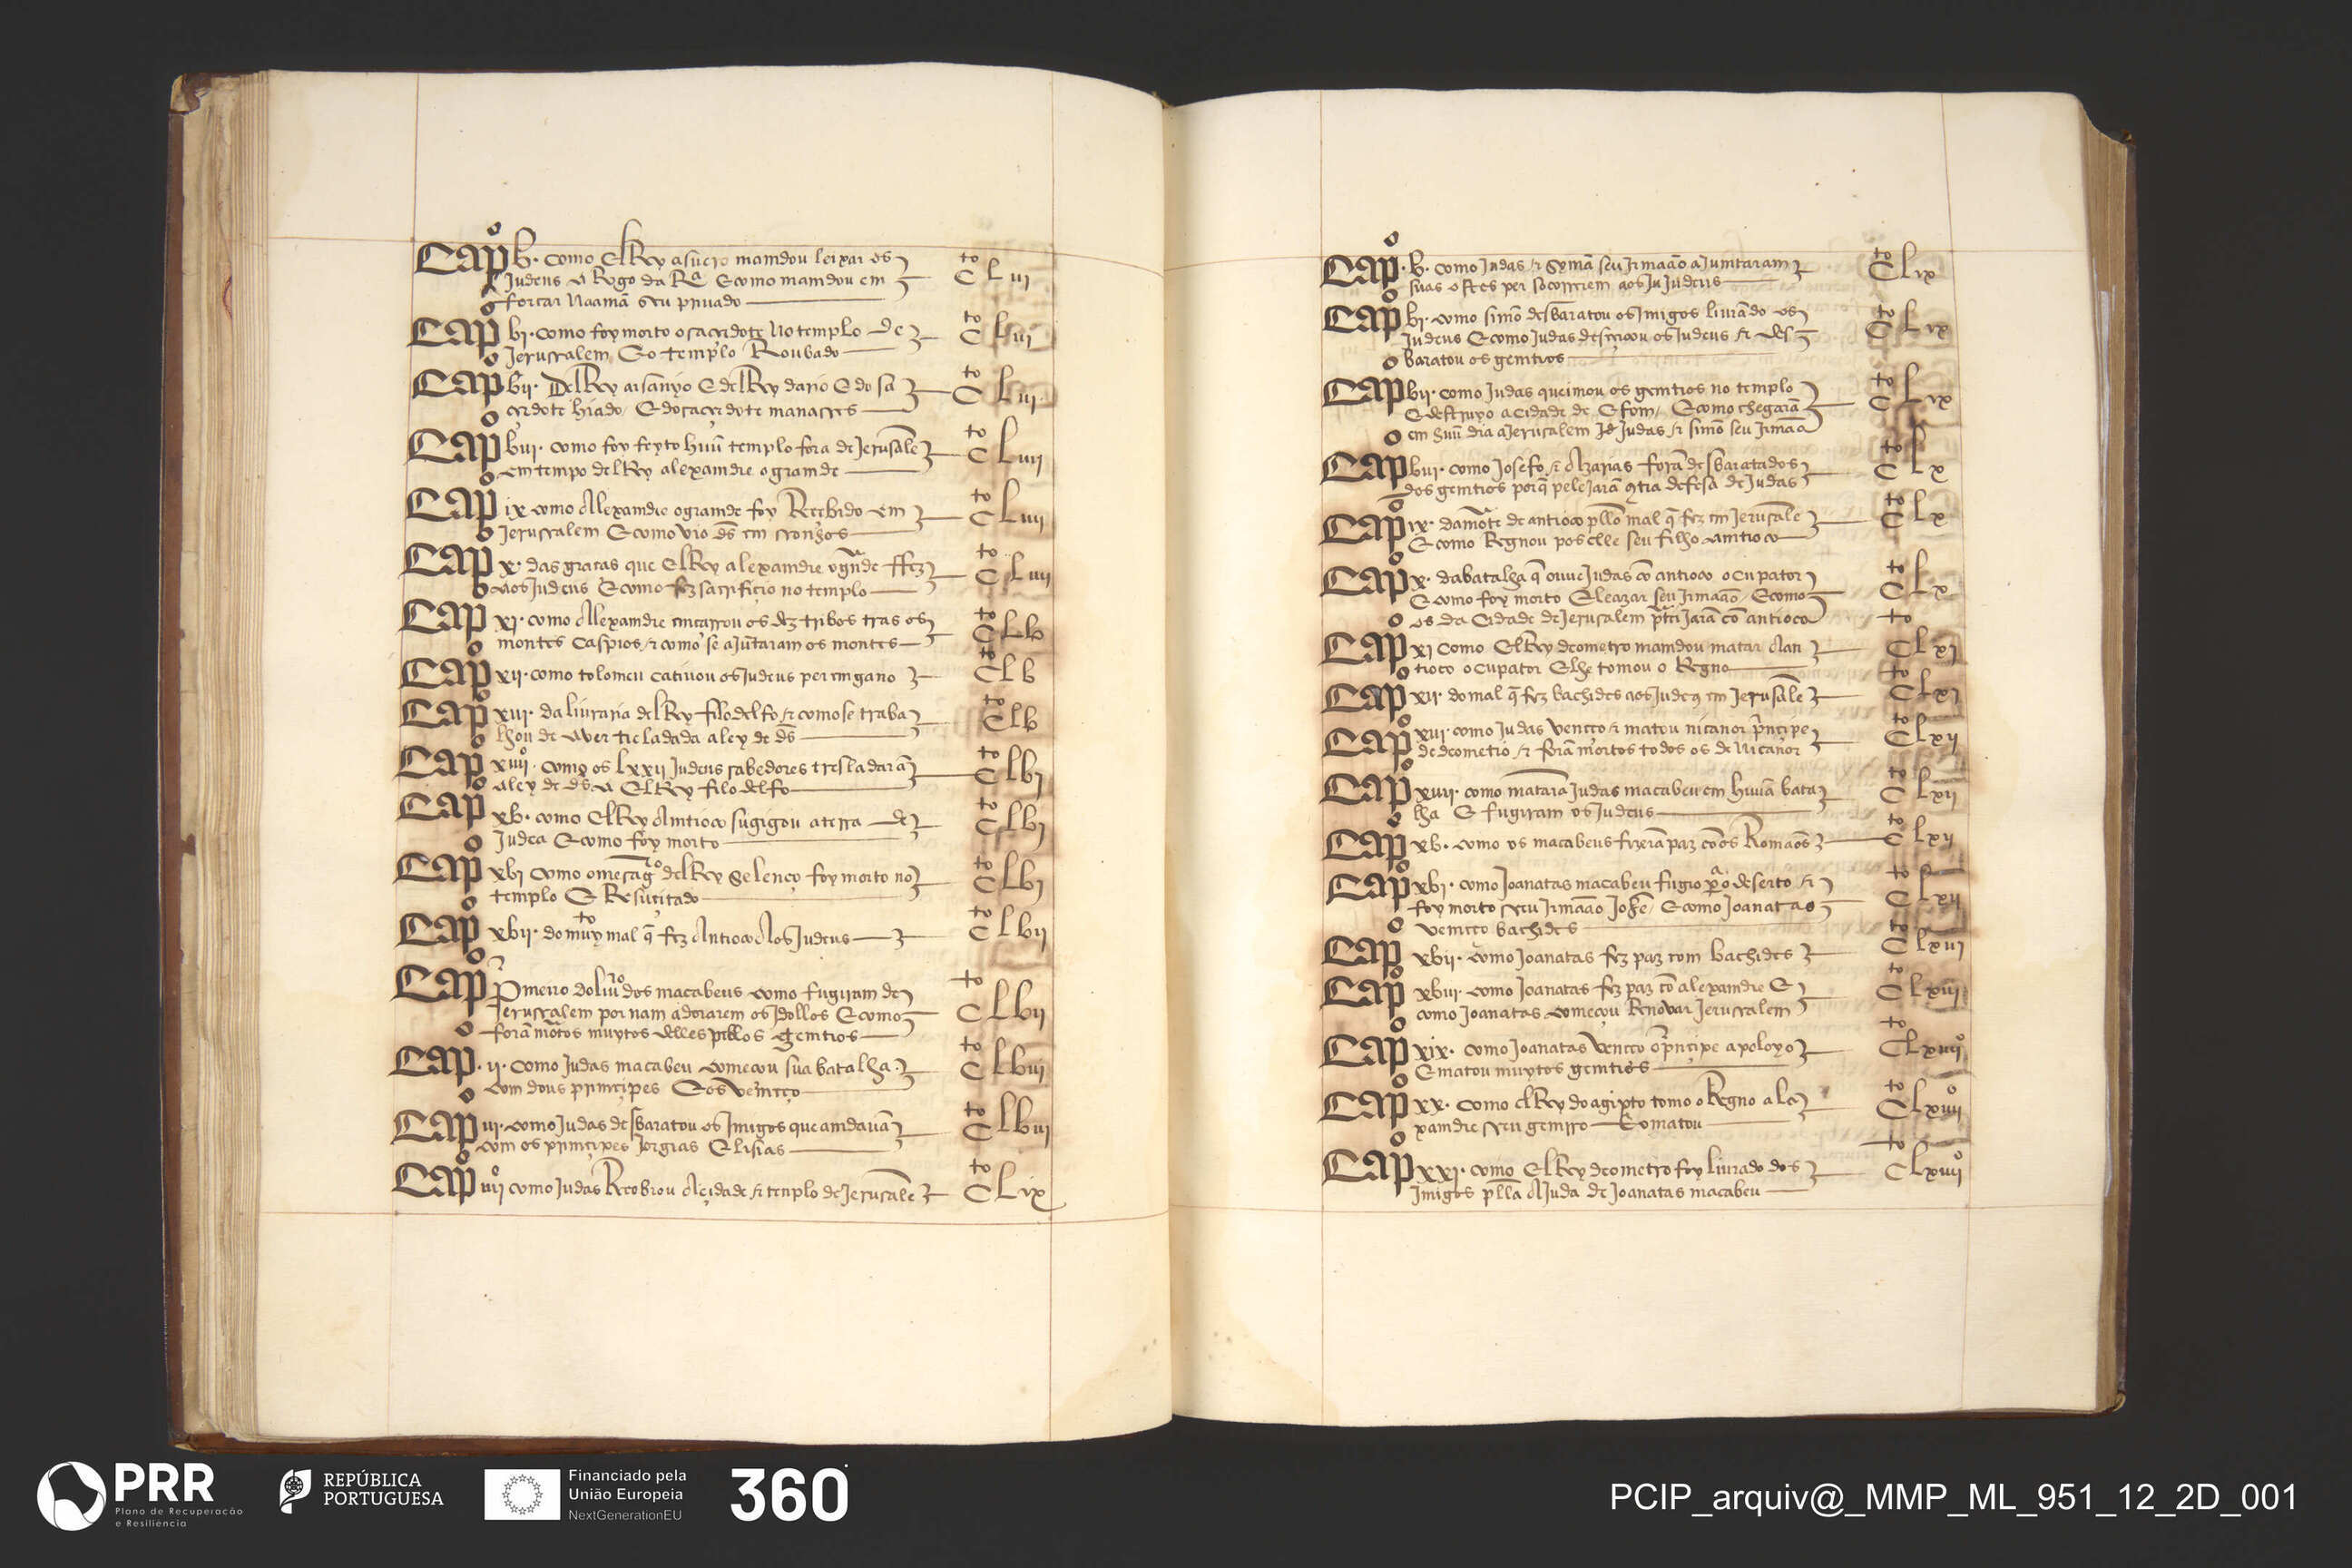 Capº b. como ElRey asuero mamdou leixar os
Judeus a Rogo da Rª E como mamdou em
forcar Naamã seu priuado
to CLui
Capº bi. como foy morto o sacerdote No templo de
Jerusalem E o templo Roubado
to CLui
Capº bii. DelRey arsamyo E delRey dario E do sa
cerdote hiado E do sacerdote manasses
to CLui
Capº biii. como foy feyto huũ templo fora de Jerusalẽ
em tempo delRey alexamdre o gramde
to CLuii
Capº ix como Alexamdre o gramde foy Recebido em
Jerusalem E como vio ds̃ em sonhos
to CLiiii
Capº x. das graças que ElRey alexamdre o grãde ffez
aos Judeus E como fez sacrificio no templo
to CLiiii
Capº xi. como Alexamdre emcarrou os dez tribos tras os
montes Caspios, & como se ajũtaram os montes
to CLb
Capº xii. como tolomeu catiuou os Judeus per emgano
to CLb
Capº xiii. da liuraria delRey filodelfo & como se traba
lhou de aver treladada a ley de ds̃
to CLb
Capº xiiiiº. como os lxxii Judeus sabedores tresladarã
a ley de ds̃ a ElRey filodelfo
to CLbi
Capº xb. como ElRey Amtioco sugigou a terra de
Judea E como foy morto
to CLbi
Capº xbi como o mesagrº delRey Selenco foy morto no
templo E Resucitado
to CLbi
Capº xbii. do muyto mal q̃ fez Antioco Aos Judeus
to CLbii
Capº Primeiro do liurº dos macabeus como fugiram de
Jerusalem por nam adorarem os Jdollos E como
forã mortos muytos delles pellos gemtios
to CLbii
Capº ii. como Judas macabeu começou sua batalha
com dous primçipes E os vemçeo
to CLbiii
Capº iii. como Judas desbaratou os Jmigos que amdauã
com os primçipes Jorgias E lisias
to CLbiii
Capº iiiiº como Judas Recobrou A çidade & templo de Jerusalẽ
to CLix
Capº. b. como Judas & Symã seu Jrmaão ajumtaram
suas ostes per socorrem aos Judeus
to CLix
Capº bi. como simõ desbaratou os Jmigos liurãdo os
Judeus E como Judas desçercou os Judeus & des
baratou os gemtios
to CLix
Capº bii. como Judas queimou os gemtios no templo
E destruyo a cidade de Efom, E como chegarã
em huũ dia a Jerusalem Jd Judas & simõ seu Jrmaão
to CLix
Capº biii. como Josefo & Azarias forã desbaratados
dos gemtios porq̃ pelejarã cõtra defesa de Judas
to CLx
Capº ix. da morte de antioco pello mal q̃ fez em Jerusalẽ
E como Regnou pos elle seu filho amtioco
to CLx
Capº x. da batalha q̃ ouue Judas cõ antioco ocupator
E como foy morto Eleazar seu Jrmaão, E como
os da Cidade de Jerusalem preitejarã cõ antioco
to CLx
Capº xi Como ElRey deometro mamdou matar Aan
tioco ocupator E lhe tomou o Regno
to CLxi
Capº xii. do mal q̃ fez bachides aos Judeus em Jerusalẽ
to CLxi
Capº xiii como Judas vemceo & matou nicanor primcipe
de deometrio, & forã mortos todos os de Nicanor
to CLxii
Capº xiiii. como matarã Judas macabeu em huũa bata
lha E fugiram os Judeus
to CLxii
Capº xb. como os macabeus fizerã paz cõ os Romãos
to CLxii
Capº xbi. como Joanatas macabeu fugio pera o deserto &
foy morto seu Jrmaão Josẽ, E como Joanatas
vemceo bachides
to CLxii
Capº xbii. como Joanatas fez paz com bachides
to CLxiii
Capº xbiii. como Joanatas fez paz cõ alexamdre E
como Joanatas começou Renovar Jerusalem
to CLxiii
Capº xix. como Joanatas vemceo o primcipe apoloyo
E matou muytos gemtios
to CLxiiiiº
Capº xx. como elRey do agipto tomo o Regno a Le
xamdre seu gemrro E o matou
to CLxiiiiº
Capº xxi. como ElRey deometro foy liurado dos
Jmigos pella Ajuda de Joanatas macabeu
to CLxiiiiº
PRR
Plano de Recuperação
e Resiliência
REPÚBLICA
PORTUGUESA
Financiado pela
União Europeia
NextGenerationEU
360
PCIP_arquiv@_MMP_ML_951_12_2D_001